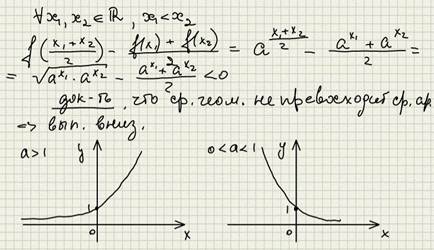 ∀x₁, x₂ ∈ ℝ, x₁ < x₂
f((x₁+x₂)/2) - (f(x₁) + f(x₂))/2 = a^((x₁+x₂)/2) - (a^x₁ + a^x₂)/2 =
= √(a^x₁ · a^x₂) - (a^x₁ + a^x₂)/2 < 0
док-ть, что ср. геом. не превосходит ср. ар.
=> вып. вниз.
a > 1 y 0 < a < 1 y
1 1
0 x 0 x